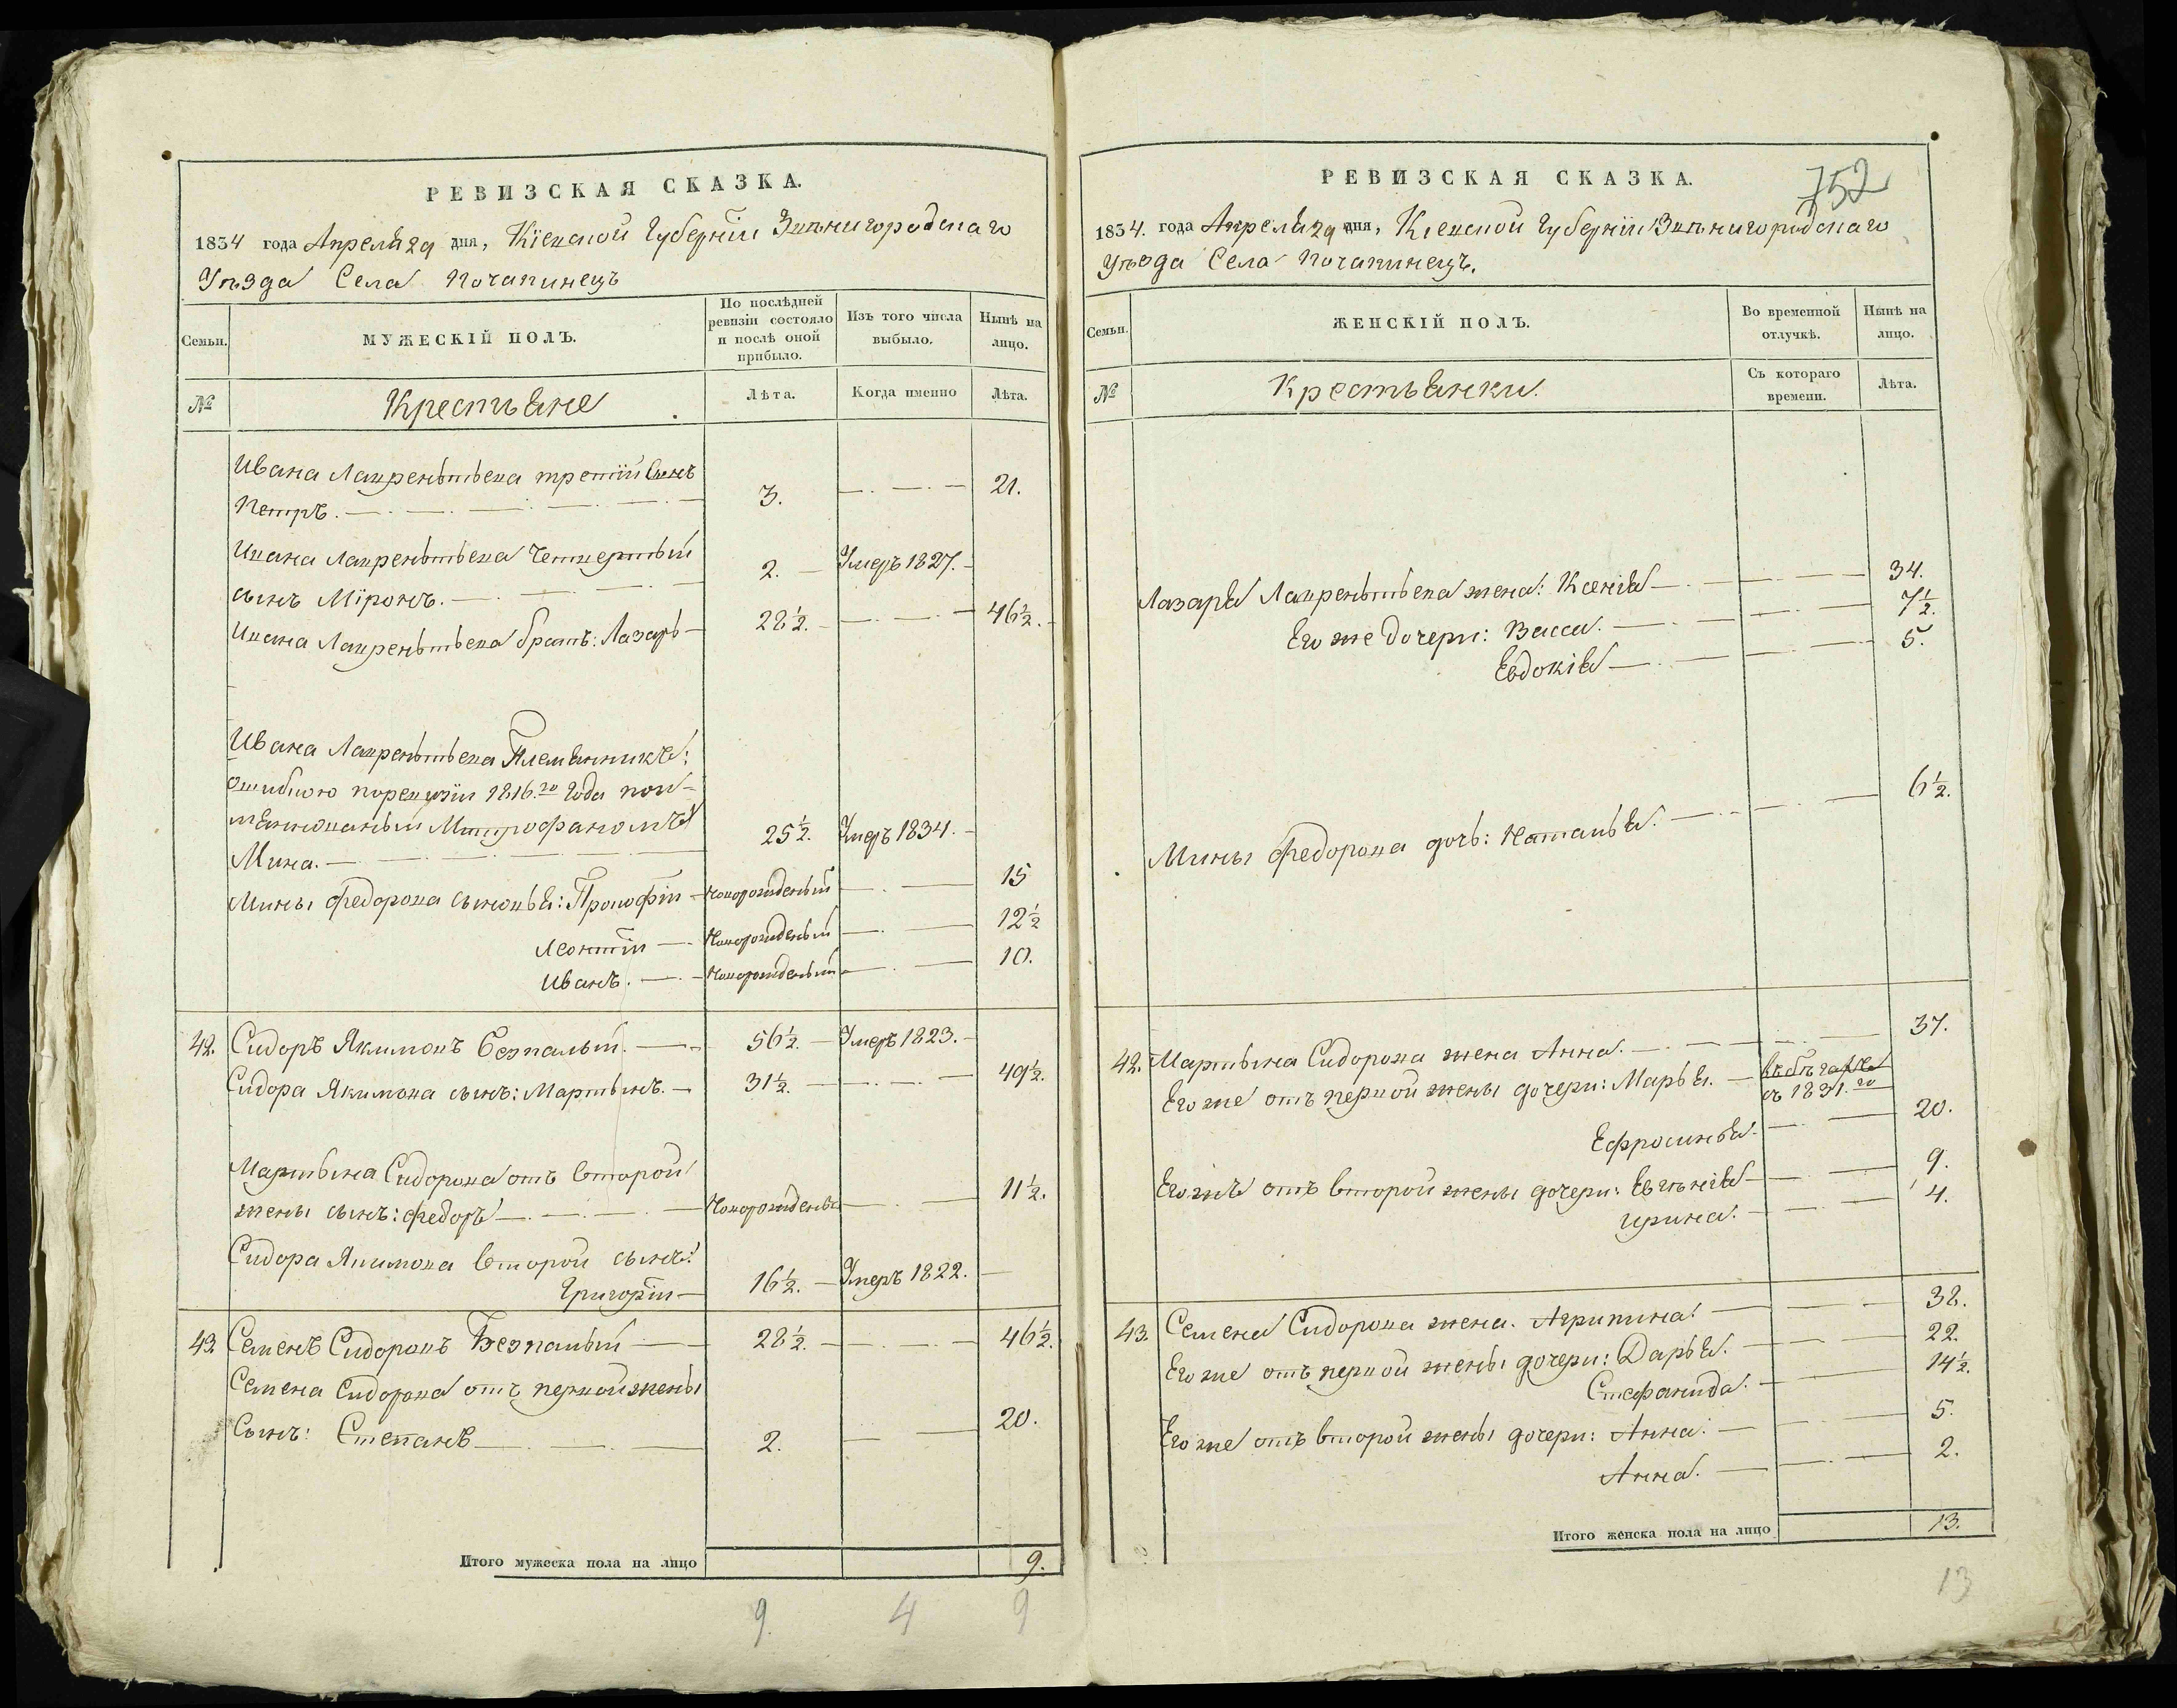 РЕВИЗСКАЯ СКАЗКА.
1834 года Апреля 29 дня, Кіевской Губерніи Звѣнигородскаго
Уѣзда Села Почапинецъ
Семьи.
МУЖЕСКІЙ ПОЛЪ.
По послѣдней ревизіи состояло и послѣ оной прибыло.
Изъ того числа выбыло.
Нынѣ на лицо.
№ Крестьяне Лѣта. Когда именно Лѣта.
Ивана Лаврентьева третій Сынъ
Петръ. 3. 21.
Ивана Лаврентьева Четвертый
сынъ Міронъ. 2. Умеръ 1827.
Ивана Лаврентьева братъ: Лазарь 28½. 46½.
Ивана Лаврентьева Племянникъ:
ошибкою поревизіи 1816.го Года пои-
мянованый Митрофаномъ
Мина. 25½. Умеръ 1834.
Мины Федорова сыновья: Прокофій Новорожденый 15
Леонтій Новорожденый 12½
Иванъ. Новорожденый 10.
42. Сидоръ Якимовъ Безпалый. 56½. Умеръ 1823.
Сидора Якимова сынъ: Мартынъ. 31½. 49½.
Мартына Сидорова отъ второй
жены сынъ: Федоръ Новорожденый 11½.
Сидора Якимова второй сынъ:
Григорій 16½. Умеръ 1822.
43. Семенъ Сидоровъ Безпалый 28½. 46½.
Семена Сидорова отъ первой жены
Сынъ: Степанъ 2. 20.
Итого мужеска пола на лицо 9.
9. 4 9
752
РЕВИЗСКАЯ СКАЗКА.
1834. года Апреля 29 дня, Кіевской Губерніи Звѣнигородскаго
Уѣзда Села Почапинецъ.
Семьи.
ЖЕНСКІЙ ПОЛЪ.
Во временной отлучкѣ.
Нынѣ на лицо.
№ Крестьянки. Съ котораго времени. Лѣта.
Лазаря Лаврентьева жена: Ксенія 34.
Его же дочери: Васса. 7½.
Евдокія 5.
Мины Федорова дочь: Наталья. 6½.
42. Мартына Сидорова жена Анна. 37.
Его же отъ первой жены дочери: Марья. въ бѣгахъ
съ 1831.го
Ефросинья. 20.
Его жъ отъ второй жены дочери: Евгенія 9.
Ирина. 4.
43. Семена Сидорова жена. Агрипина. 38.
Его же отъ первой жены дочери: Дарья. 22.
Стефанида. 14½.
Его же отъ второй жены дочери: Анна. 5.
Анна. 2.
Итого женска пола на лицо 13.
13